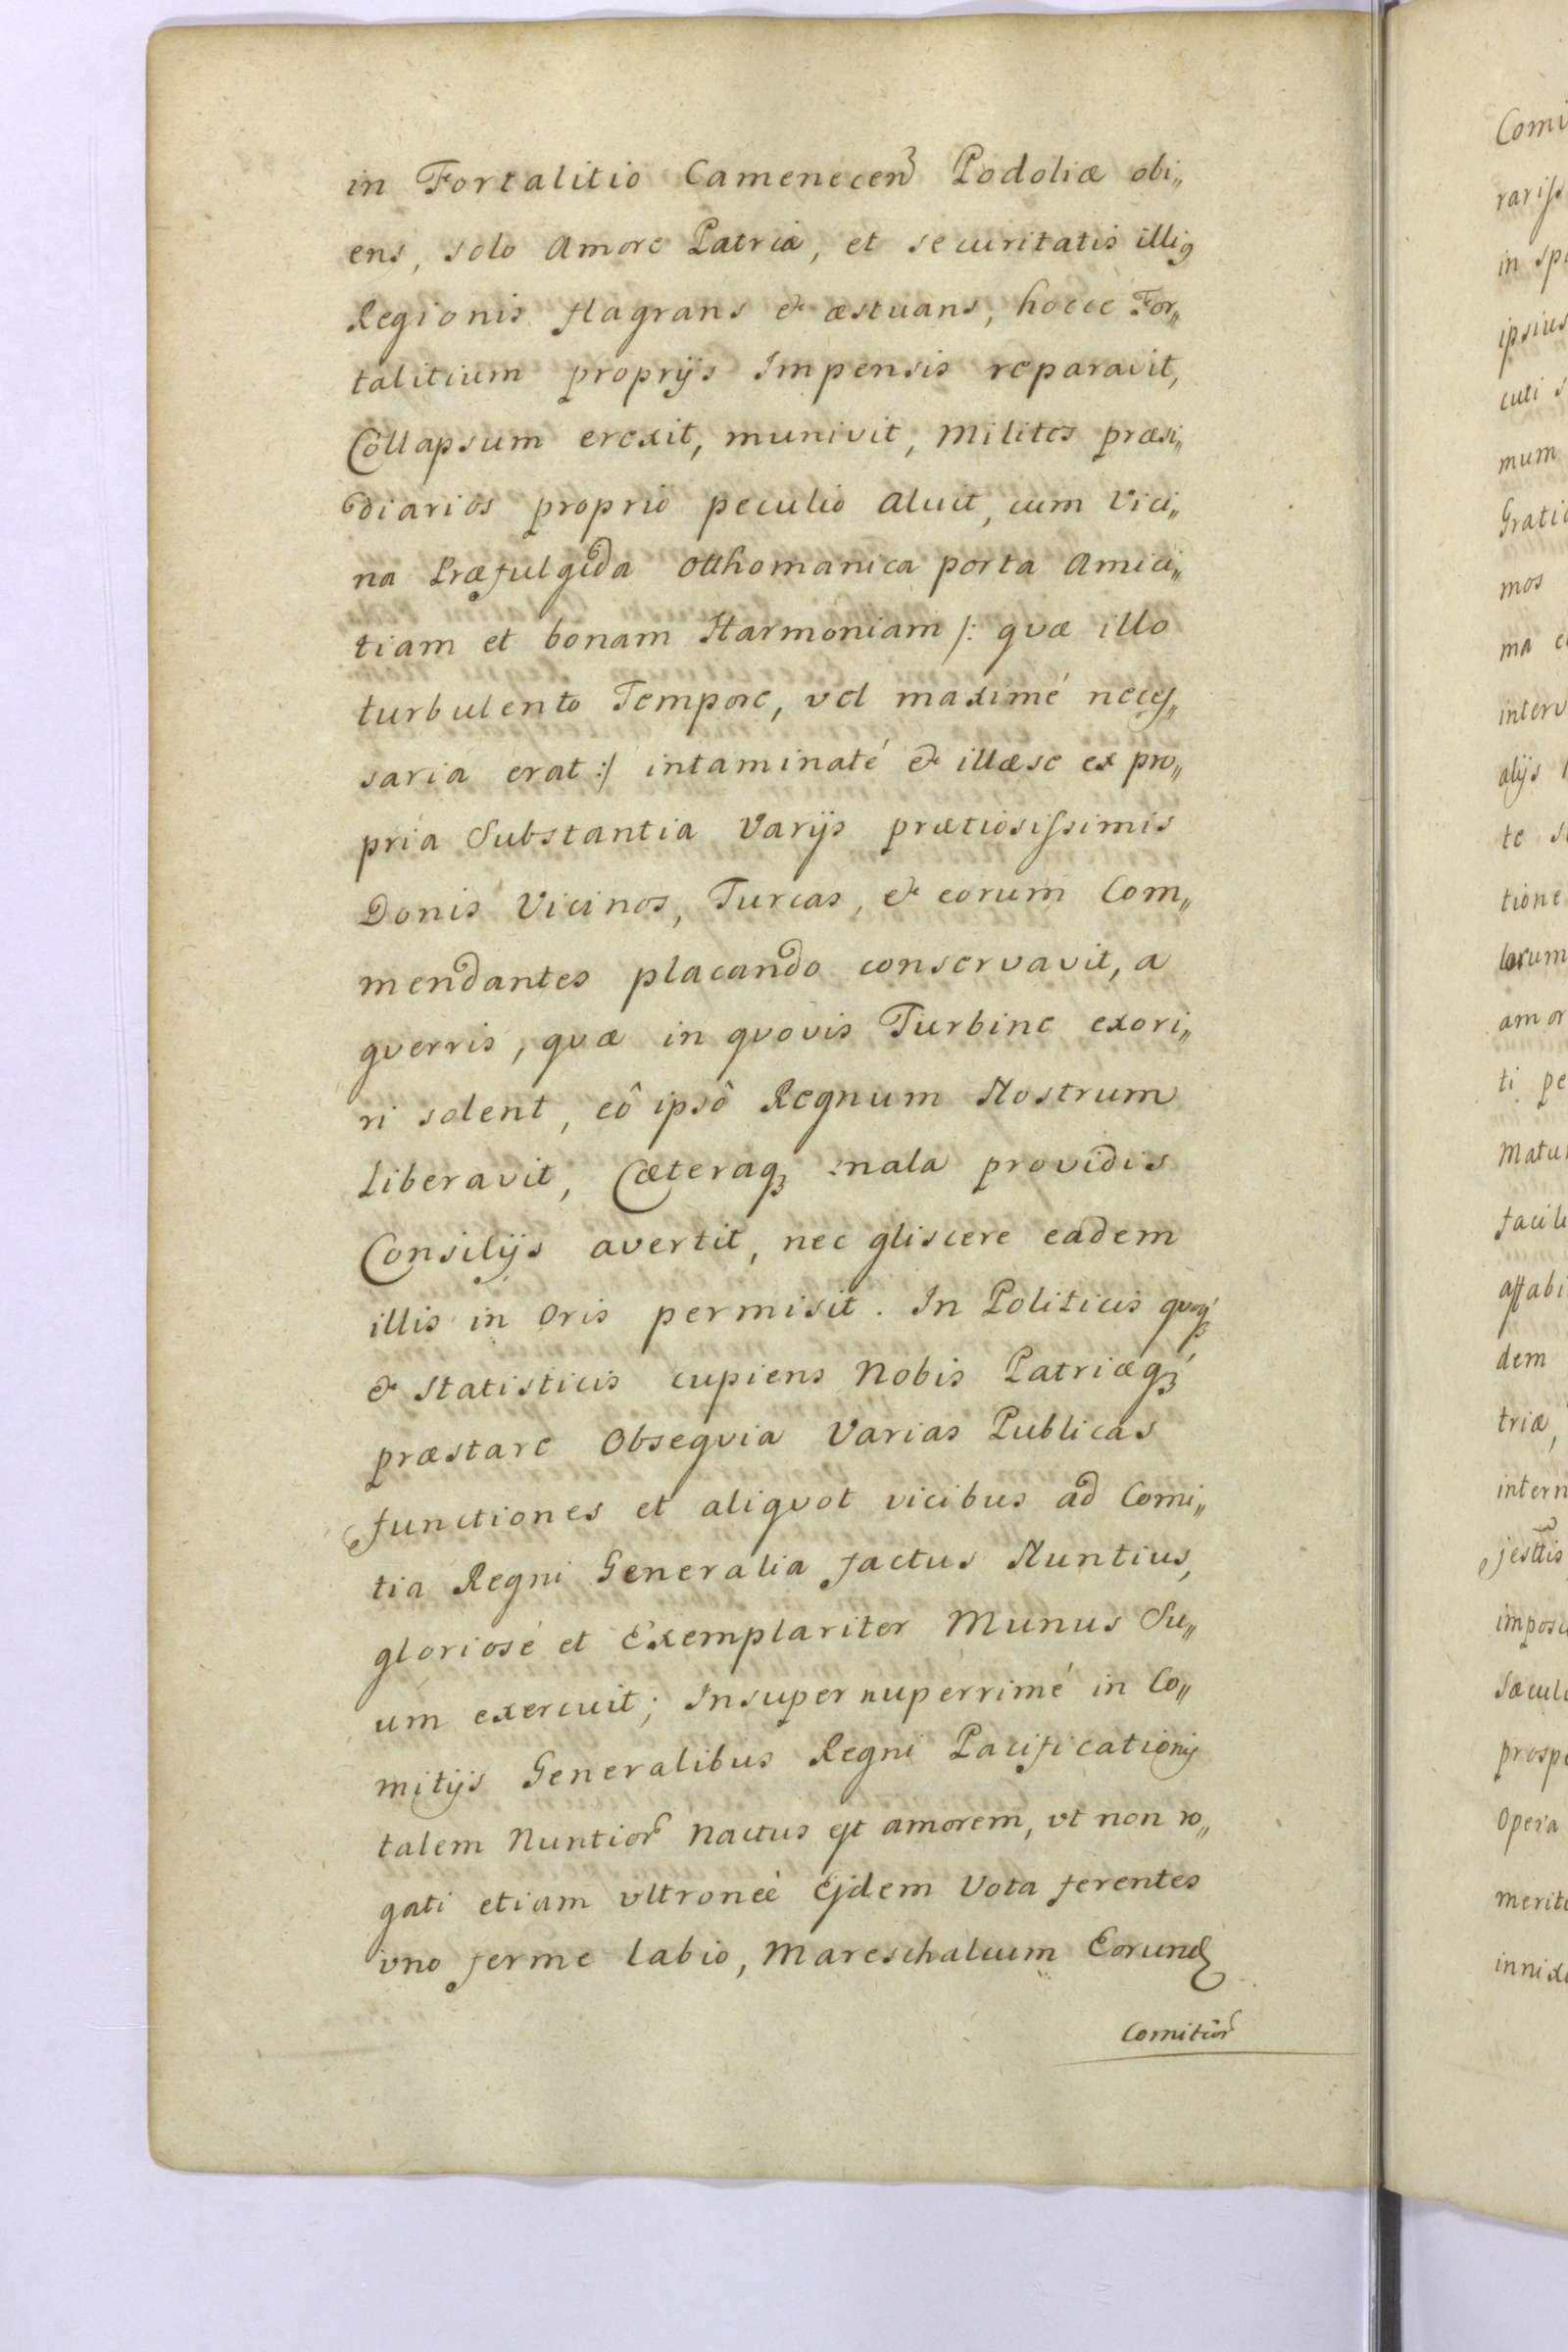 in Fortalitio Camenecen Podoliæ obi„
ens, solo Amore Patriæ, et securitatis illig
Regionis flagrans & æstuans, hocce For„
talitium proprijs Impensis reparavit,
Collapsum erexit, munivit, Milites præsi„
diarios proprio peculio aluit, cum Vici„
na Præfulgida Otthomanica porta Amici„
tiam et bonam Harmoniam /: qvæ illo
turbulento Tempore, vel maximé neces„
saria erat :/ intaminaté & illæse ex pro„
pria Substantia Varijs prætiosissimis
Donis Vicinos, Turcas, & eorum Com„
mendantes placando conservavit, a
gverris, qvæ in qvovis Turbine exori„
ri solent, eô ipsô Regnum Nostrum
Liberavit, Cæteraq; mala providis
Consilijs avertit, nec gliscere eadem
illis in Oris permisit. In Politicis qvoq;
& Statisticis cupiens Nobis Patriæq;
præstare Obseqvia Varias Publicas
functiones et aliqvot vicibus ad Comi„
tia Regni Generalia factus Nuntius,
gloriosé et Exemplariter Munus Su„
um exercuit; Insuper nuperrimé in Co„
mitijs Generalibus Regni Pacificationis
talem Nuntior Nactus est amorem, vt non ro„
gati etiam vltroneé Ejdem Vota ferentes
vno ferme labio, Mareschalcum Eorund
Comitior
Comi
rariss
in sp
ipsius
cuti s
mum
Grati
mos
ma c
interv
alijs
te s
tione
lorum
amor
ti pe
Matu
facil
affabi
dem
triæ,
intern
jesttis
impos
Sæcul
prosp
Opera
merit
innix